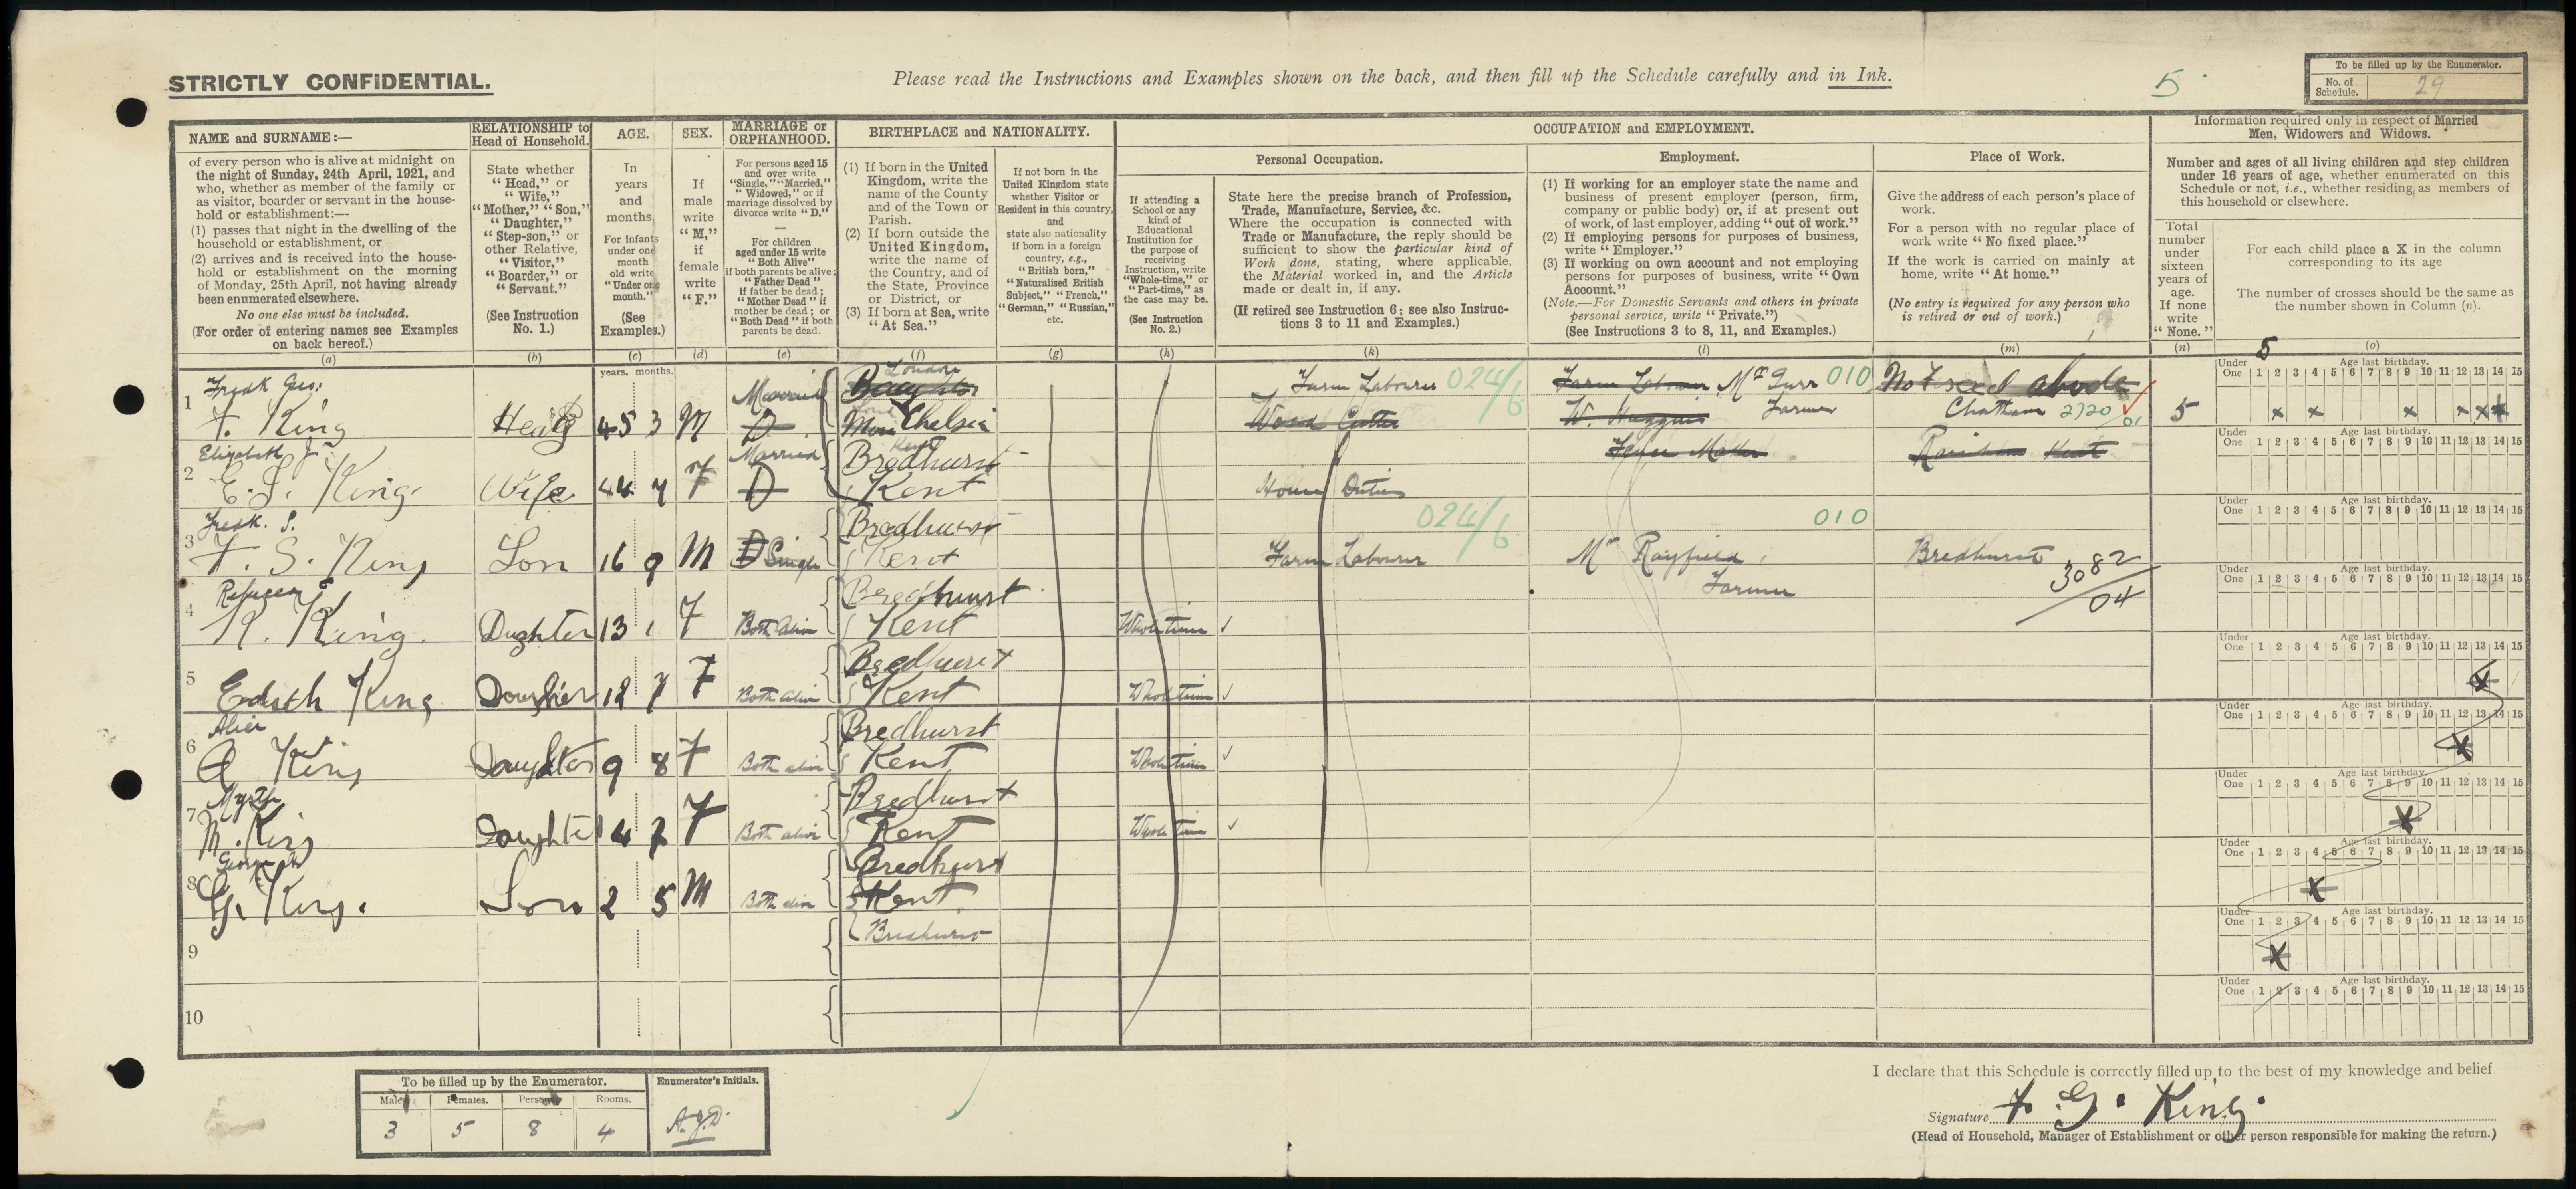 STRICTLY CONFIDENTIAL.
Please read the Instructions and Examples shown on the back, and then fill up the Schedule carefully and in Ink.
5
To be filled up by the Enumerator.
No. of Schedule. 29
NAME and SURNAME:—
of every person who is alive at midnight on
the night of Sunday, 24th April, 1921, and
who, whether as member of the family or
as visitor, boarder or servant in the house-
hold or establishment:—
(1) passes that night in the dwelling of the
household or establishment, or
(2) arrives and is received into the house-
hold or establishment on the morning
of Monday, 25th April, not having already
been enumerated elsewhere.
No one else must be included.
(For order of entering names see Examples
on back hereof.)
(a)
RELATIONSHIP to
Head of Household.
State whether
"Head," or
"Wife,"
"Mother," "Son,"
"Daughter,"
"Step-son," or
other Relative,
"Visitor,"
"Boarder," or
"Servant."
(See Instruction
No. 1.)
(b)
AGE.
In
years
and
months.
For infants
under one
month
old write
"Under one
month."
(See
Examples.)
(c)
SEX.
If
male
write
"M,"
if
female
write
"F."
(d)
MARRIAGE or
ORPHANHOOD.
For persons aged 15
and over write
"Single," "Married,"
"Widowed," or if
marriage dissolved by
divorce write "D."
—
For children
aged under 15 write
"Both Alive"
if both parents be alive;
"Father Dead"
if father be dead;
"Mother Dead" if
mother be dead; or
"Both Dead" if both
parents be dead.
(e)
BIRTHPLACE and NATIONALITY.
(1) If born in the United
Kingdom, write the
name of the County
and of the Town or
Parish.
(2) If born outside the
United Kingdom,
write the name of
the Country, and of
the State, Province
or District, or
(3) If born at Sea, write
"At Sea."
(f)
If not born in the
United Kingdom state
whether Visitor or
Resident in this country,
and
state also nationality
if born in a foreign
country, e.g.,
"British born,"
"Naturalised British
Subject," "French,"
"German," "Russian,"
etc.
(g)
OCCUPATION and EMPLOYMENT.
Personal Occupation.
If attending a
School or any
kind of
Educational
Institution for
the purpose of
receiving
Instruction, write
"Whole-time," or
"Part-time," as
the case may be.
(See Instruction
No. 2.)
(h)
State here the precise branch of Profession,
Trade, Manufacture, Service, &c.
Where the occupation is connected with
Trade or Manufacture, the reply should be
sufficient to show the particular kind of
Work done, stating, where applicable,
the Material worked in, and the Article
made or dealt in, if any.
(If retired see Instruction 6; see also Instruc-
tions 3 to 11 and Examples.)
(k)
Employment.
(1) If working for an employer state the name and
business of present employer (person, firm,
company or public body) or, if at present out
of work, of last employer, adding "out of work."
(2) If employing persons for purposes of business,
write "Employer."
(3) If working on own account and not employing
persons for purposes of business, write "Own
Account."
(Note.—For Domestic Servants and others in private
personal service, write "Private.")
(See Instructions 3 to 8, 11, and Examples.)
(l)
Place of Work.
Give the address of each person's place of
work.
For a person with no regular place of
work write "No fixed place."
If the work is carried on mainly at
home, write "At home."
(No entry is required for any person who
is retired or out of work.)
(m)
Information required only in respect of Married
Men, Widowers and Widows.
Number and ages of all living children and step children
under 16 years of age, whether enumerated on this
Schedule or not, i.e., whether residing as members of
this household or elsewhere.
Total
number
under
sixteen
years of
age.
If none
write
"None."
(n)
For each child place a X in the column
corresponding to its age
The number of crosses should be the same as
the number shown in Column (n).
5 (o)
years. months.
Under One 1 2 3 4 5 6 7 8 9 10 11 12 13 14 15
Age last birthday.
Fredk Geo: Married London Farm Labourer 024/6 Farm Labourer Mr Gurr 010 No fixed abode
1 F. King Head 45 3 M D Chelsia Wood Cutter W. Huggins Farmer Chatham 2720/01 5 x x x x x
Elizabeth J. Married Kent Bredhurst Fence Maker Rainham Kent
2 E. J. King Wife 44 7 F D Kent Home Duties
Fredk. S. Bredhurst 024/6 010
3 F. S. King Son 16 9 M D Single Kent Farm Labourer Mr Rayfield Farmer Bredhurst 3082/04
Bredhurst
4 R. King. Dughter 13 1 F Both Alive Kent Whole time
Bredhurst
5 Edith King Daughter 12 7 F Both alive Kent Whole time x
Alice Bredhurst
6 A King Daughter 9 8 F Both alive Kent Whole time x
Bredhurst
7 M. King Daughter 4 7 F Both alive Kent Whole time x
George Bredhurst
8 G. King. Son 2 5 M Both alive Kent x
Bredhurst
9 x
10
To be filled up by the Enumerator.
Males. Females. Persons. Rooms.
3 5 8 4
Enumerator's Initials.
A.J.D.
I declare that this Schedule is correctly filled up to the best of my knowledge and belief.
Signature F. G. King.
(Head of Household, Manager of Establishment or other person responsible for making the return.)